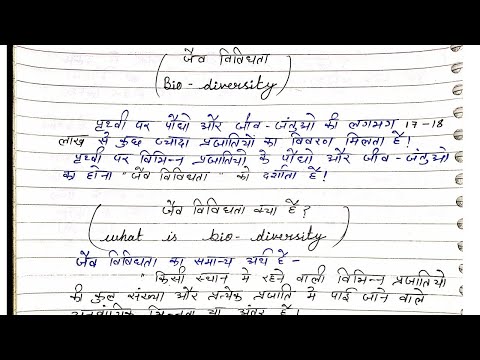 जैव विविधता
(Bio - diversity)
पृथ्वी पर पौधो और जीव - जंतुओ की लगभग 17-18
लाख से कुछ ज्यादा प्रजातियो का विवरण मिलता है!
पृथ्वी पर विभिन्न प्रजातियो के पौधो और जीव - जंतुओ
का होना "जैव विविधता" को दर्शाता है!
जैव विविधता क्या है?
(what is bio - diversity)
जैव विविधता का समान्य अर्थ है -
" किसी स्थान मे रहने वाली विभिन्न प्रजातियो
की कुल संख्या और प्रत्येक प्रजाति मे पाई जाने वाले